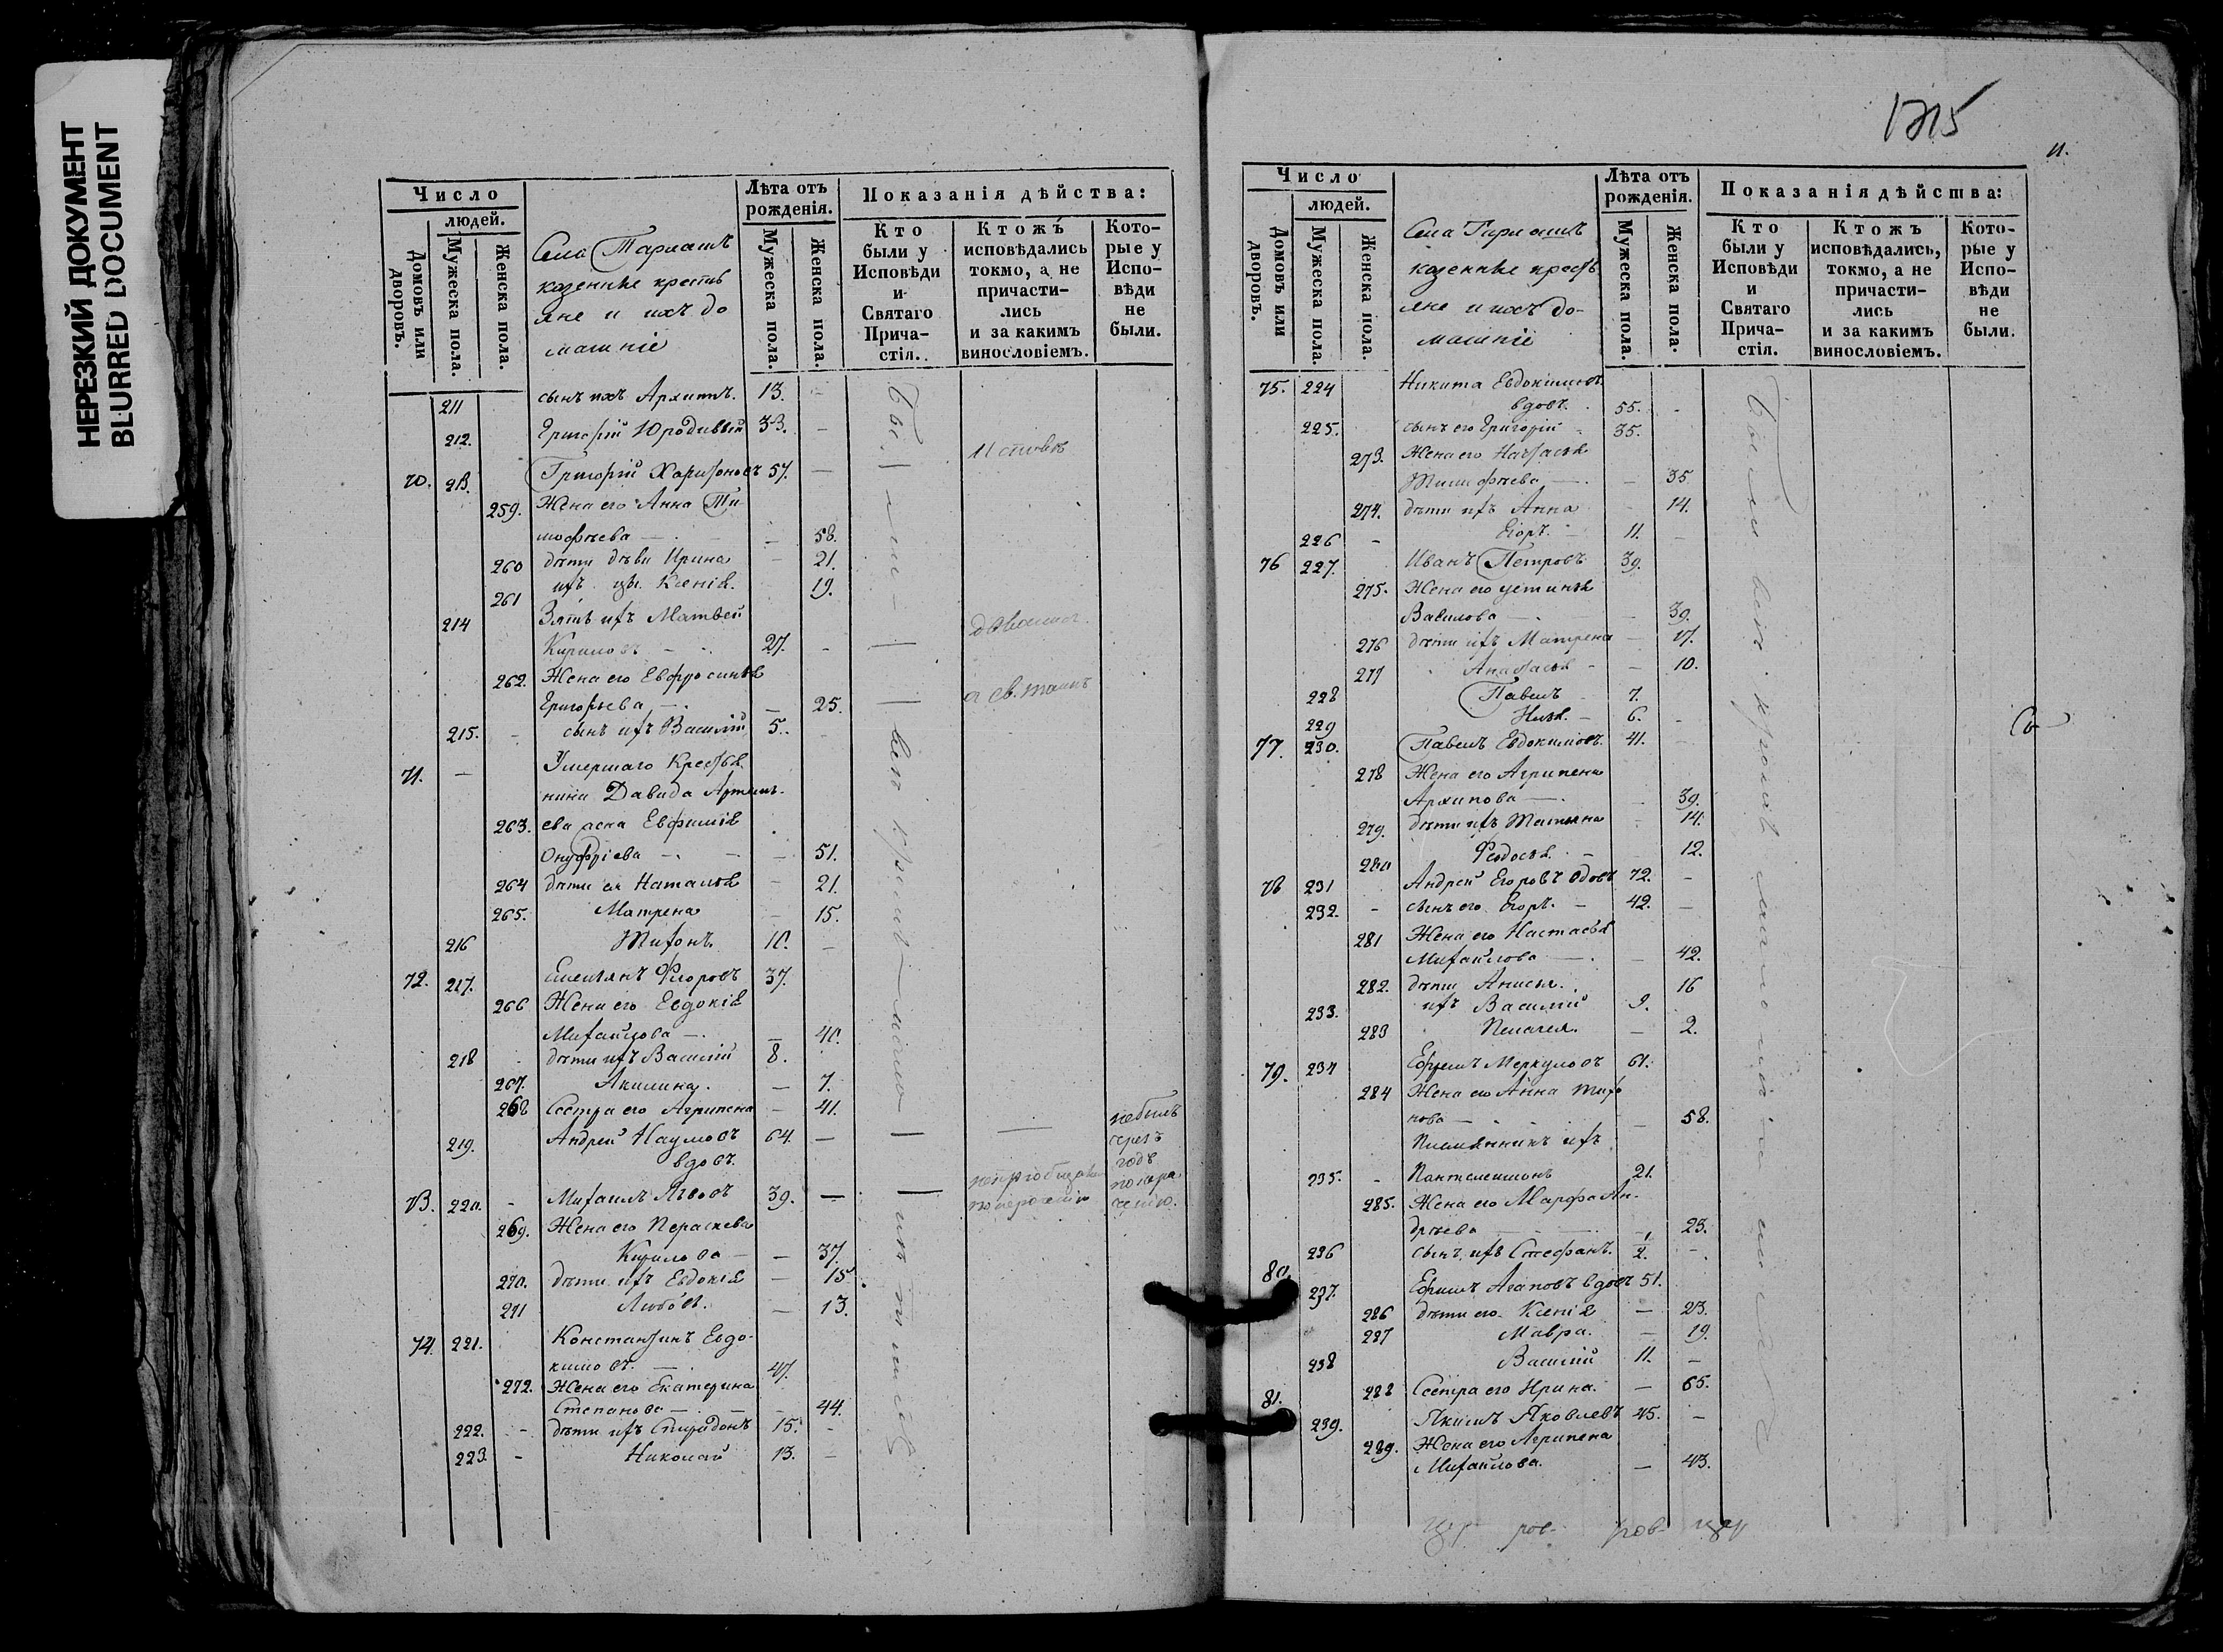 НЕРЕЗКИЙ ДОКУМЕНТ
BLURRED DOCUMENT
Число
людей.
Домовъ или дворовъ.
Мужеска пола.
Женска пола.
Села Тарлашъ
казенные кресть
яне и ихъ до
машніе
Лѣта отъ рожденія.
Мужеска пола.
Женска пола.
Показанія дѣйства:
Кто были у Исповѣди и Святаго Прича-стія.
Ктожъ исповѣдались токмо, а не причасти-лись и за какимъ винословіемъ.
Кото-рые у Испо-вѣди не были.
211 сынъ ихъ Архипъ. 13. -
212. Григорій Юродивый 33. -
70. 213. Григорій Харитоновъ 57. -
259. Жена его Анна Ти-
мофѣева - 58.
260 дѣти дѣвы Ирина - 21.
261 ихъ Ксенія. 19.
214 Зять ихъ Матвей
Кириловъ 27. -
262. Жена его Евфросинья
Григорьева - 25.
215. - сынъ ихъ Василій 5. -
71. - Умершаго Крестья
нина Давида Артемь-
263. ева Евфимія
Онуфріева - 51.
264 дѣти ея Наталья - 21.
265. Матрена - 15.
216 Тихонъ 10. -
72. 217. Емельянъ Федоровъ 37.
266 Жена его Евдокія
Михайлова - 40.
218 дѣти ихъ Василій 8.
267. Акилина. - 7.
268 Сестра его Агрипена - 41.
219. Андрей Наумовъ 64. -
вдовъ.
небылъ
черезъ
годъ
73. 220. - Михаилъ Львовъ 39. -
269. Жена его Параскева
Кирилова - 37.
270. дѣти ихъ Евдокія - 15.
271 Любовь. - 13.
74. 221. Константинъ Евдо-
кимовъ. 47.
272. Жена его Екатерина
Степанова - 44.
222. - дѣти ихъ Спиридонъ 15. -
223. - Николай 13. -
1215
Число
людей.
Домовъ или дворовъ.
Мужеска пола.
Женска пола.
Села Тарлашъ
казенные кресть
яне и ихъ до-
машніе
Лѣта отъ рожденія.
Мужеска пола.
Женска пола.
Показанія дѣйства:
Кто были у Исповѣди и Святаго Прича-стія.
Ктожъ исповѣдались, токмо, а не причасти-лись и за какимъ винословіемъ.
Кото-рые у Испо-вѣди не были.
75. 224 Никита Евдокимовъ
вдовъ. 55. -
225. сынъ его Григорій 35.
273. Жена его Настасья
Тимофѣева - 35
274. дѣти ихъ Анна - 14.
226 - Егоръ. 11. -
76 227. Иванъ Петровъ 39.
275. Жена его Устинья
Вавилова - 39.
276 дѣти ихъ Матрена - 17.
277 Анастасья - 10.
228 Павелъ 7.
229 Илья. - 6. -
77. 230. Павелъ Евдокимовъ. 41. -
278 Жена его Агрипена
Архипова - 39.
279. дѣти ихъ Татьяна - 14.
280 Федосья. - 12.
78 231 Андрей Егоровъ вдовъ 72. -
232. - сынъ его Егоръ. 42. -
281 Жена его Настасья
Михайлова - 42.
282. дѣти Анисья. 16
233. ихъ Василій 9.
283 Пелагея. - 2.
79. 234 Ефремъ Меркуловъ 61.
284 Жена его Анна Тихо
нова - 58.
Племянникъ ихъ
235. - Пантелеимонъ 21.
285. Жена его Марфа Ан-
дрѣева 23.
236 сынъ ихъ Стефанъ. 1/2. -
80. 237. Ефимъ Агаповъ вдовъ 51.
286 дѣти его Ксенія - 23.
287 Мавра. - 19.
238 Василій 11. -
288 Сестра его Ирина. - 65.
81. 239. Якимъ Яковлевъ 45. -
289. Жена его Агрипена
Михайлова. - 43.